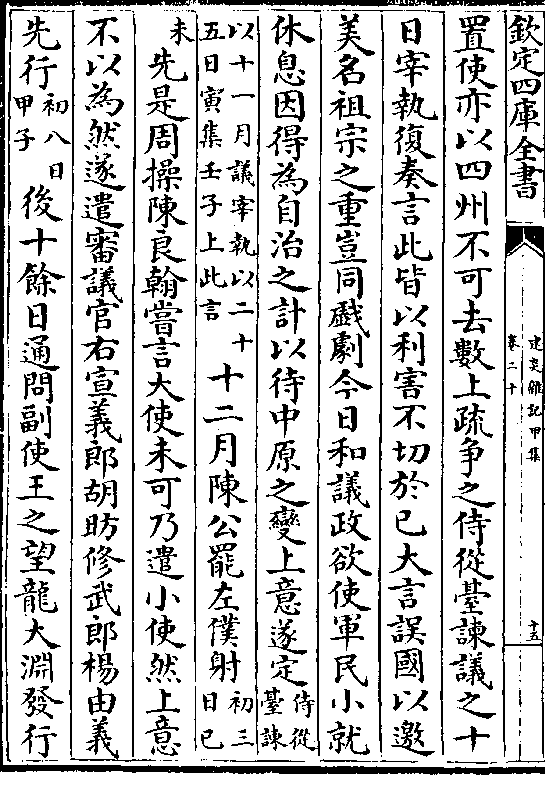 欽定四庫全書
建炎雜記甲集
卷二十
十五
置使亦以四州不可去數上疏争之侍從臺諫議之十
日宰執復奏言此皆以利害不切於已大言誤國以邀
美名祖宗之重豈同戯劇今日和議政欲使軍民小就
休息因得為自治之計以待中原之變上意遂定侍從臺諫
以十一月議宰執以二十五日寅集壬子上此言十二月陳公罷左僕射初三日已
未先是周操陳良翰嘗言大使未可乃遣小使然上意
不以為然遂遣審議官右宣義郎胡昉修武郎楊由義
先行初八日甲子後十餘日通問副使王之望龍大淵發行